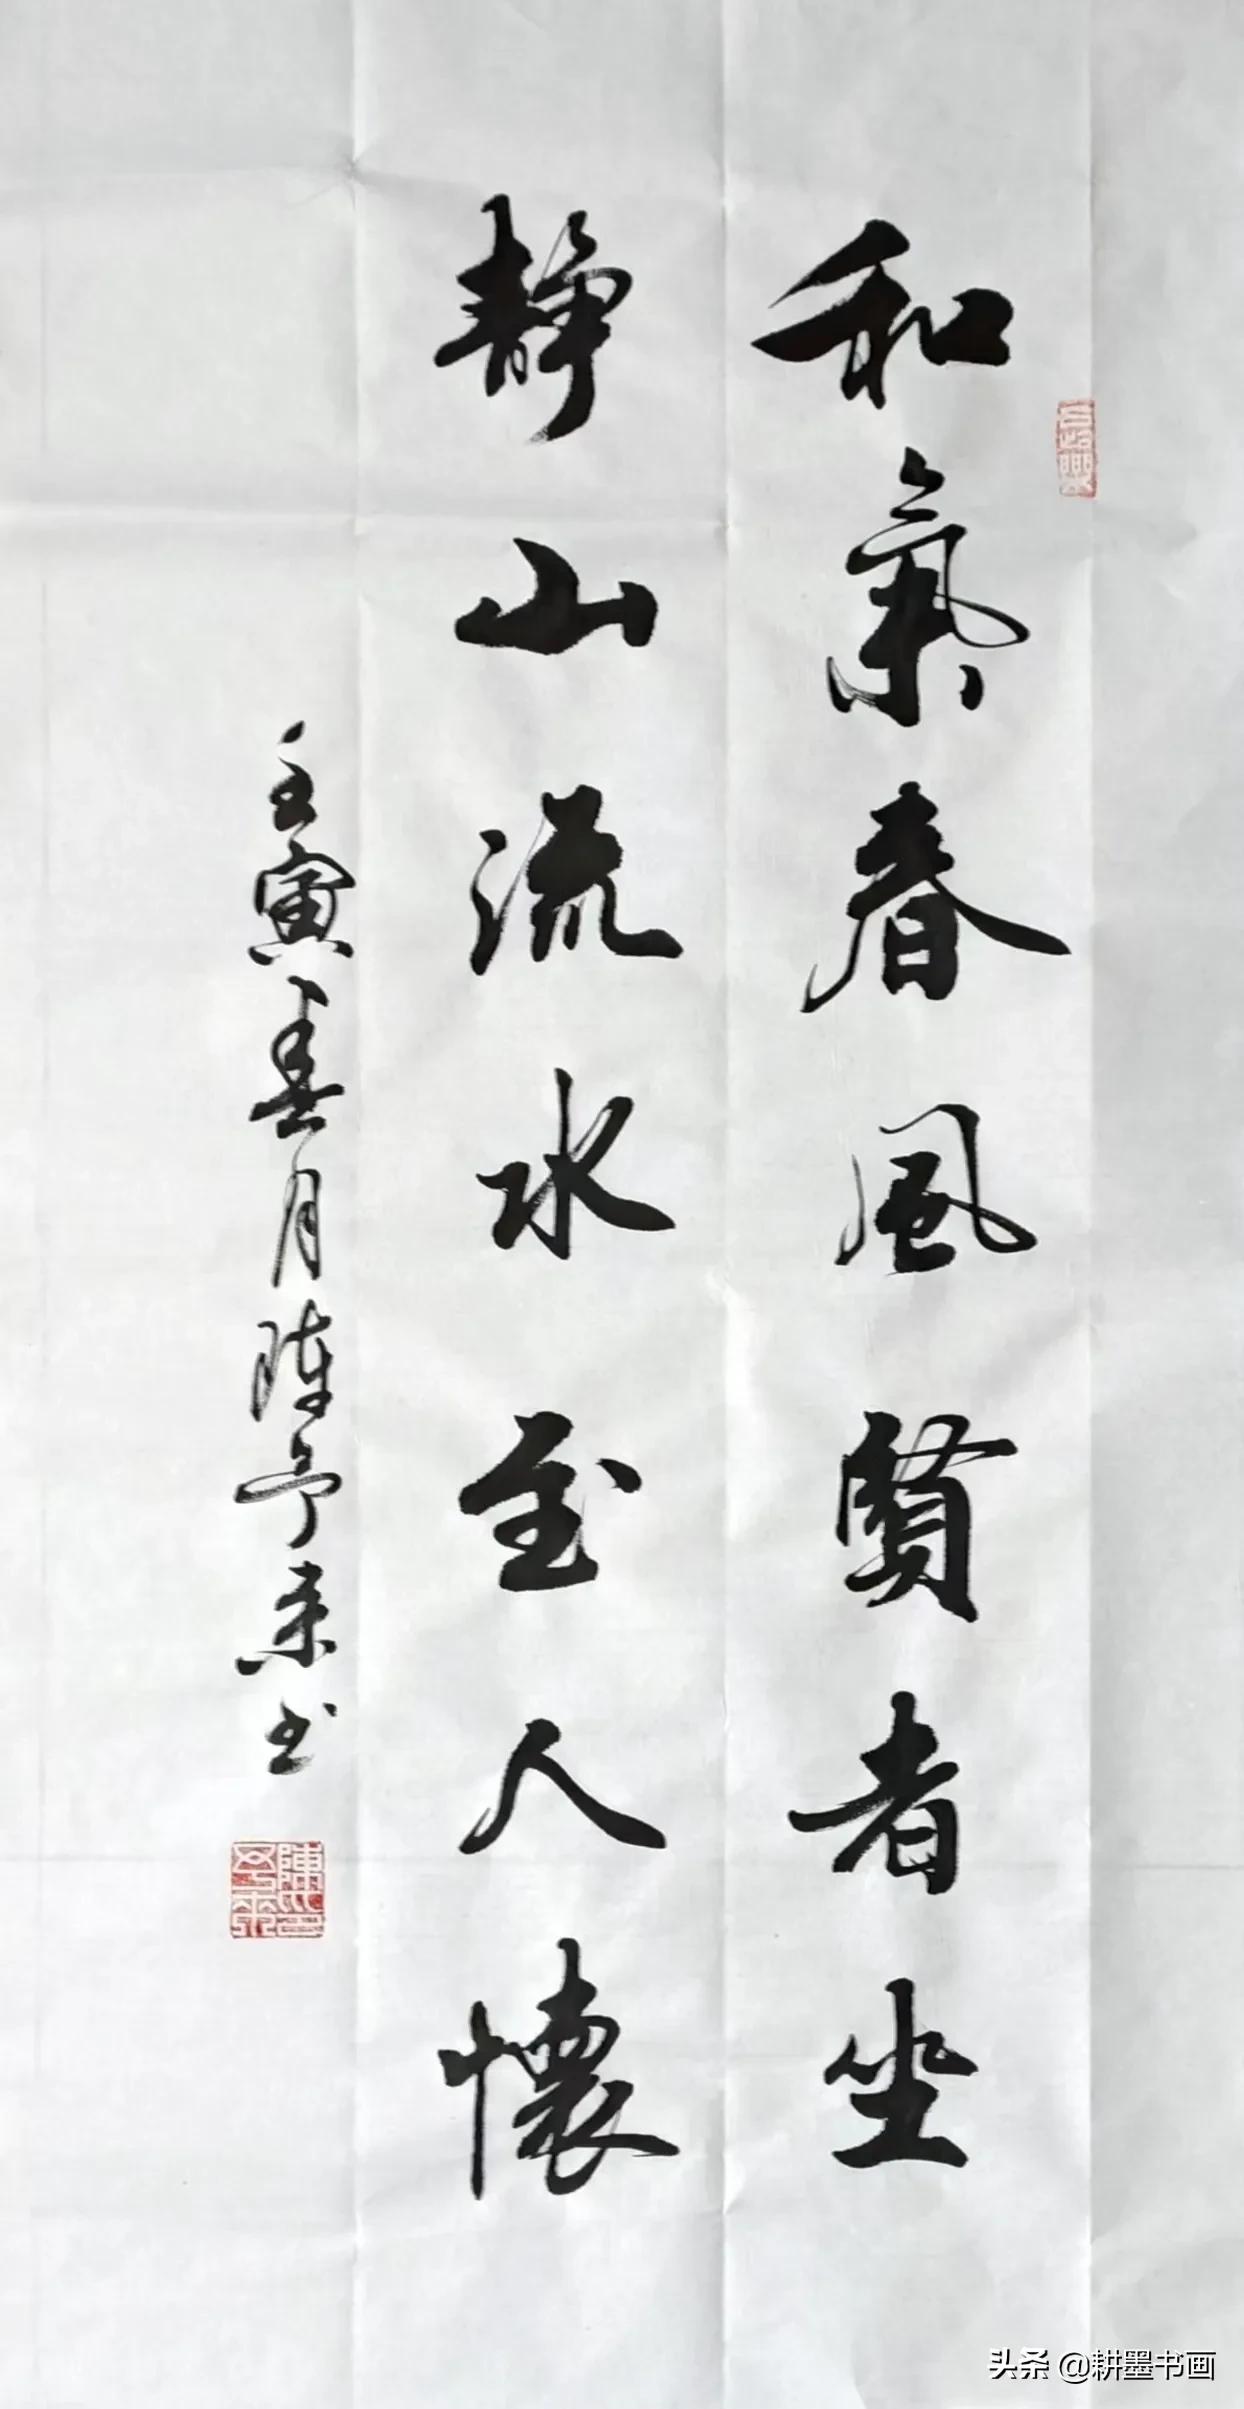 和氣春風賢者坐
靜山流水至人懷
壬寅春月陈予来书
头条 @耕墨书画